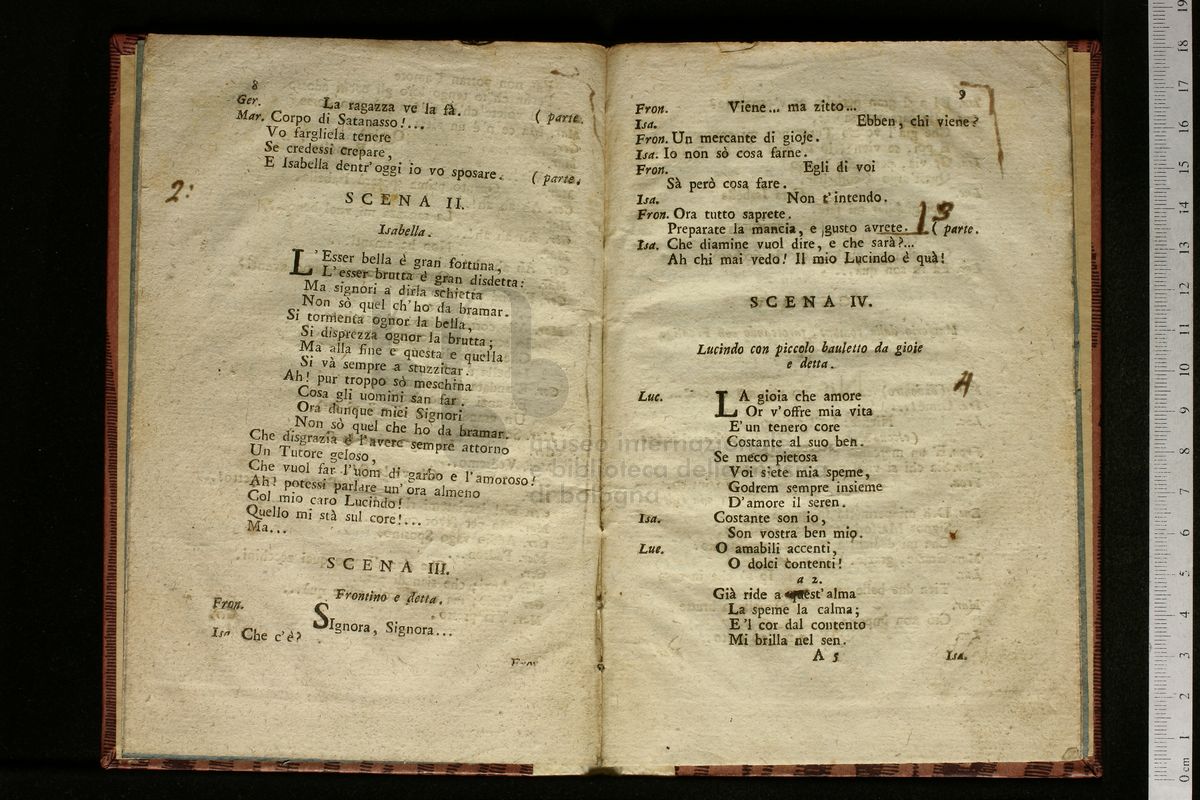 8
Ger. La ragazza ve la fà. ( parte.
Mar. Corpo di Satanasso!...
Vo fargliela tenere
Se credessi crepare,
E Isabella dentr'oggi io vo sposare. ( parte.
2:
SCENA II.
Isabella.
L'Esser bella è gran fortuna,
L'esser brutta è gran disdetta:
Ma signori a dirla schietta
Non sò quel ch'ho da bramar.
Si tormenta ognor la bella,
Si disprezza ognor la brutta;
Ma alla fine e questa e quella
Si và sempre a stuzzicar.
Ah! pur troppo sò meschina
Cosa gli uomini san far.
Ora dunque miei Signori
Non sò quel che ho da bramar.
Che disgrazia è l'avere sempre attorno
Un Tutore geloso,
Che vuol far l'uom di garbo e l'amoroso!
Ah! potessi parlare un'ora almeno
Col mio caro Lucindo!
Quello mi stà sul core!...
Ma...
SCENA III.
Frontino e detta.
Fron. SIgnora, Signora...
Isa Che c'è?
Fron
9
Fron. Viene... ma zitto...
Isa. Ebben, chi viene?
Fron. Un mercante di gioje.
Isa. Io non sò cosa farne.
Fron. Egli di voi
Sà però cosa fare.
Isa. Non t'intendo.
Fron. Ora tutto saprete.
Preparate la mancia, e gusto avrete. ( parte.
13
Isa. Che diamine vuol dire, e che sarà?...
Ah chi mai vedo! Il mio Lucindo è quà!
SCENA IV.
Lucindo con piccolo bauletto da gioie
e detta.
4
Luc. LA gioia che amore
Or v'offre mia vita
E'un tenero core
Costante al suo ben.
Se meco pietosa
Voi siete mia speme,
Godrem sempre insieme
D'amore il seren.
Isa. Costante son io,
Son vostra ben mio.
Luc. O amabili accenti,
O dolci contenti!
a 2.
Già ride a quest'alma
La speme la calma;
E'l cor dal contento
Mi brilla nel sen.
A 5 Isa.
museo internazi
e biblioteca della
di bologna
0 cm 1 2 3 4 5 6 7 8 9 10 11 12 13 14 15 16 17 18 19